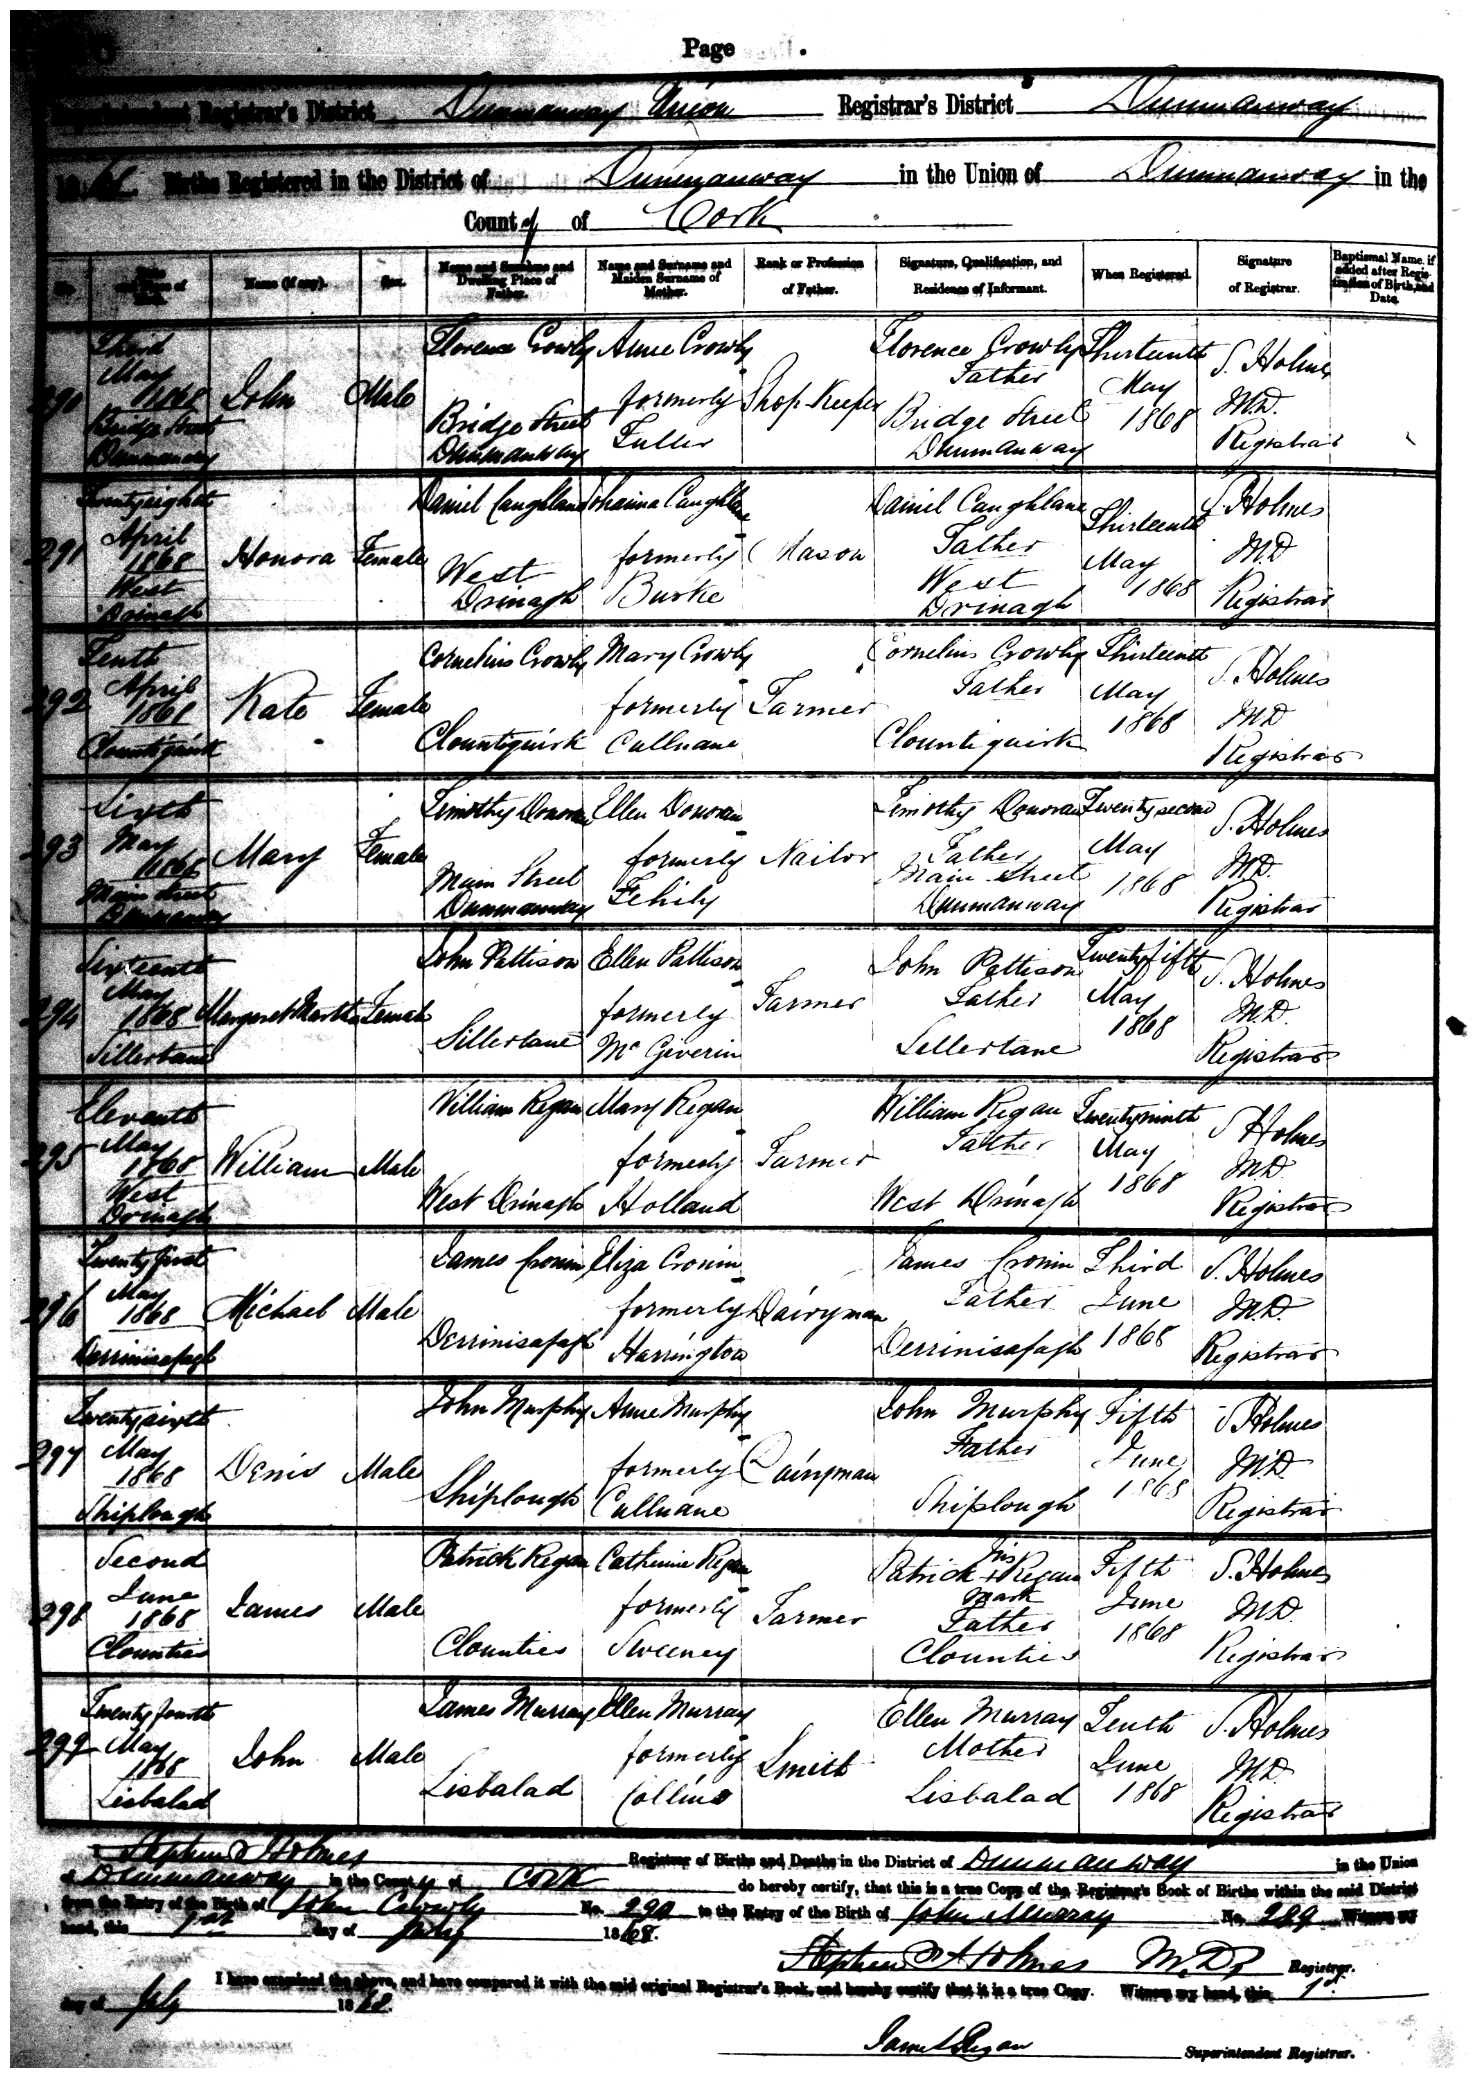 Page
Registrar's District Dunmanway Union Registrar's District Dunmanway
Births Registered in the District of Dunmanway in the Union of Dunmanway in the
County of Cork
Name (if any).
Sex.
Name and Surname and Dwelling Place of Father.
Name and Surname and Maiden Surname of Mother.
Rank or Profession of Father.
Signature, Qualification, and Residence of Informant.
When Registered.
Signature of Registrar.
Baptismal Name, if added after Registration of Birth, and Date.
290
Third May 1868 Bridge Street Dunmanway
John
Male
Florence Crowly Bridge Street Dunmanway
Anne Crowly formerly Fuller
Shop Keeper
Florence Crowly Father Bridge Street Dunmanway
Thirteenth May 1868
S. Holmes M.D. Registrar
291
Twenty eighth April 1868 West Drinagh
Honora
Female
Daniel Caughlane West Drinagh
Johanna Caughlane formerly Burke
Mason
Daniel Caughlane Father West Drinagh
Thirteenth May 1868
S. Holmes M.D Registrar
292
Tenth April 1868 Clountiquirk
Kate
Female
Cornelius Crowly Clountiquirk
Mary Crowly formerly Cullnane
Farmer
Cornelius Crowly Father Clountiquirk
Thirteenth May 1868
S. Holmes M.D Registrar
293
Sixth May 1868 Main Street Dunmanway
Mary
Female
Timothy Donovan Main Street Dunmanway
Ellen Donovan formerly Fehily
Nailor
Timothy Donovan Father Main Street Dunmanway
Twenty second May 1868
S. Holmes M.D. Registrar
294
Sixteenth May 1868 Sillertane
Margaret Martha
Female
John Pattison Sillertane
Ellen Pattison formerly Mc Giverin
Farmer
John Pattison Father Sillertane
Twenty fifth May 1868
S. Holmes M.D. Registrar
295
Eleventh May 1868 West Drinagh
William
Male
William Regan West Drinagh
Mary Regan formerly Holland
Farmer
William Regan Father West Drinagh
Twenty ninth May 1868
S Holmes M.D. Registrar
296
Twenty first May 1868 Derrinisafagh
Michael
Male
James Cronin Derrinisafagh
Eliza Cronin formerly Harrington
Dairyman
James Cronin Father Derrinisafagh
Third June 1868
S. Holmes M.D. Registrar
297
Twenty sixth May 1868 Shiplough
Denis
Male
John Murphy Shiplough
Anne Murphy formerly Cullnane
Dairyman
John Murphy Father Shiplough
Fifth June 1868
S Holmes M.D. Registrar
298
Second June 1868 Clounties
James
Male
Patrick Regan Clounties
Catherine Regan formerly Sweeney
Farmer
Patrick his + mark Regan Father Clounties
Fifth June 1868
S. Holmes M.D. Registrar
299
Twenty fourth May 1868 Lisbalad
John
Male
James Murray Lisbalad
Ellen Murray formerly Collins
Smith
Ellen Murray Mother Lisbalad
Tenth June 1868
S. Holmes M.D. Registrar
Stephen Holmes Registrar of Births and Deaths in the District of Dunmanway in the Union
of Dunmanway in the County of Cork do hereby certify, that this is a true Copy of the Registrar's Book of Births within the said District
from the Entry of the Birth of John Crowly No. 290 to the Entry of the Birth of John Murray No. 289 Witness my
hand, this 1st day of July 1868.
Stephen Holmes M.D. Registrar.
I have examined the above, and have compared it with the said original Registrar's Book, and hereby certify that it is a true Copy. Witness my hand, this 1st
day of July 1868
Superintendent Registrar.